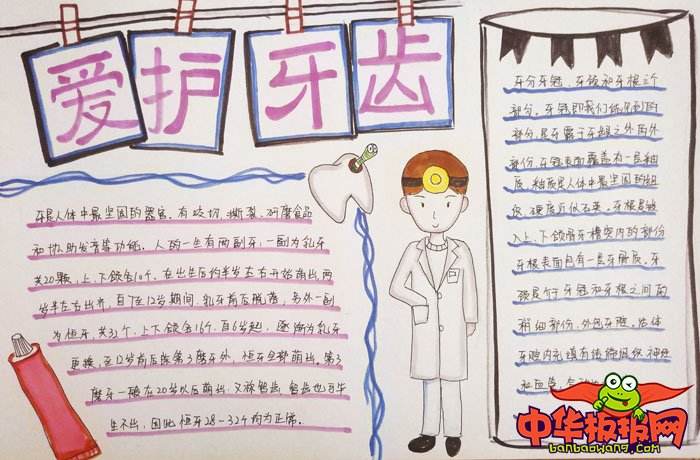 爱护牙齿
牙是人体中最坚固的器官,有咬切、撕裂、研磨食品
和协助发音等功能。人的一生有两副牙:一副为乳牙
共20颗,上、下颌各10个,在出生后约半岁左右开始萌出,两
岁半左右出齐,自7至12岁期间,乳牙前后脱落;另外一副
为恒牙,共32个,上下颌各16个,自6岁起,逐渐为乳牙
更换,至12岁前后除第3磨牙外,恒牙全部萌出。第3
磨牙一般在20岁以后萌出,又称智齿,智齿也可牛
生不出,因此恒牙28-32个均为正常。
牙分牙冠、牙颈和牙根三个
部分。牙冠即我们能见到的
部分,是牙露于牙龈之外的外
部份,牙冠表面覆盖有一层釉
质,釉质是人体中最坚固的组
织,硬度近似石英。牙根是嵌
入上、下颌骨牙槽突内的部份
牙根表面包有一层牙骨质。牙
颈是介于牙冠和牙根之间的
稍细部份,外包牙龈。活体
牙腔内充填有结缔组织、神经
和血管,
中华板报网
banbaowang.com